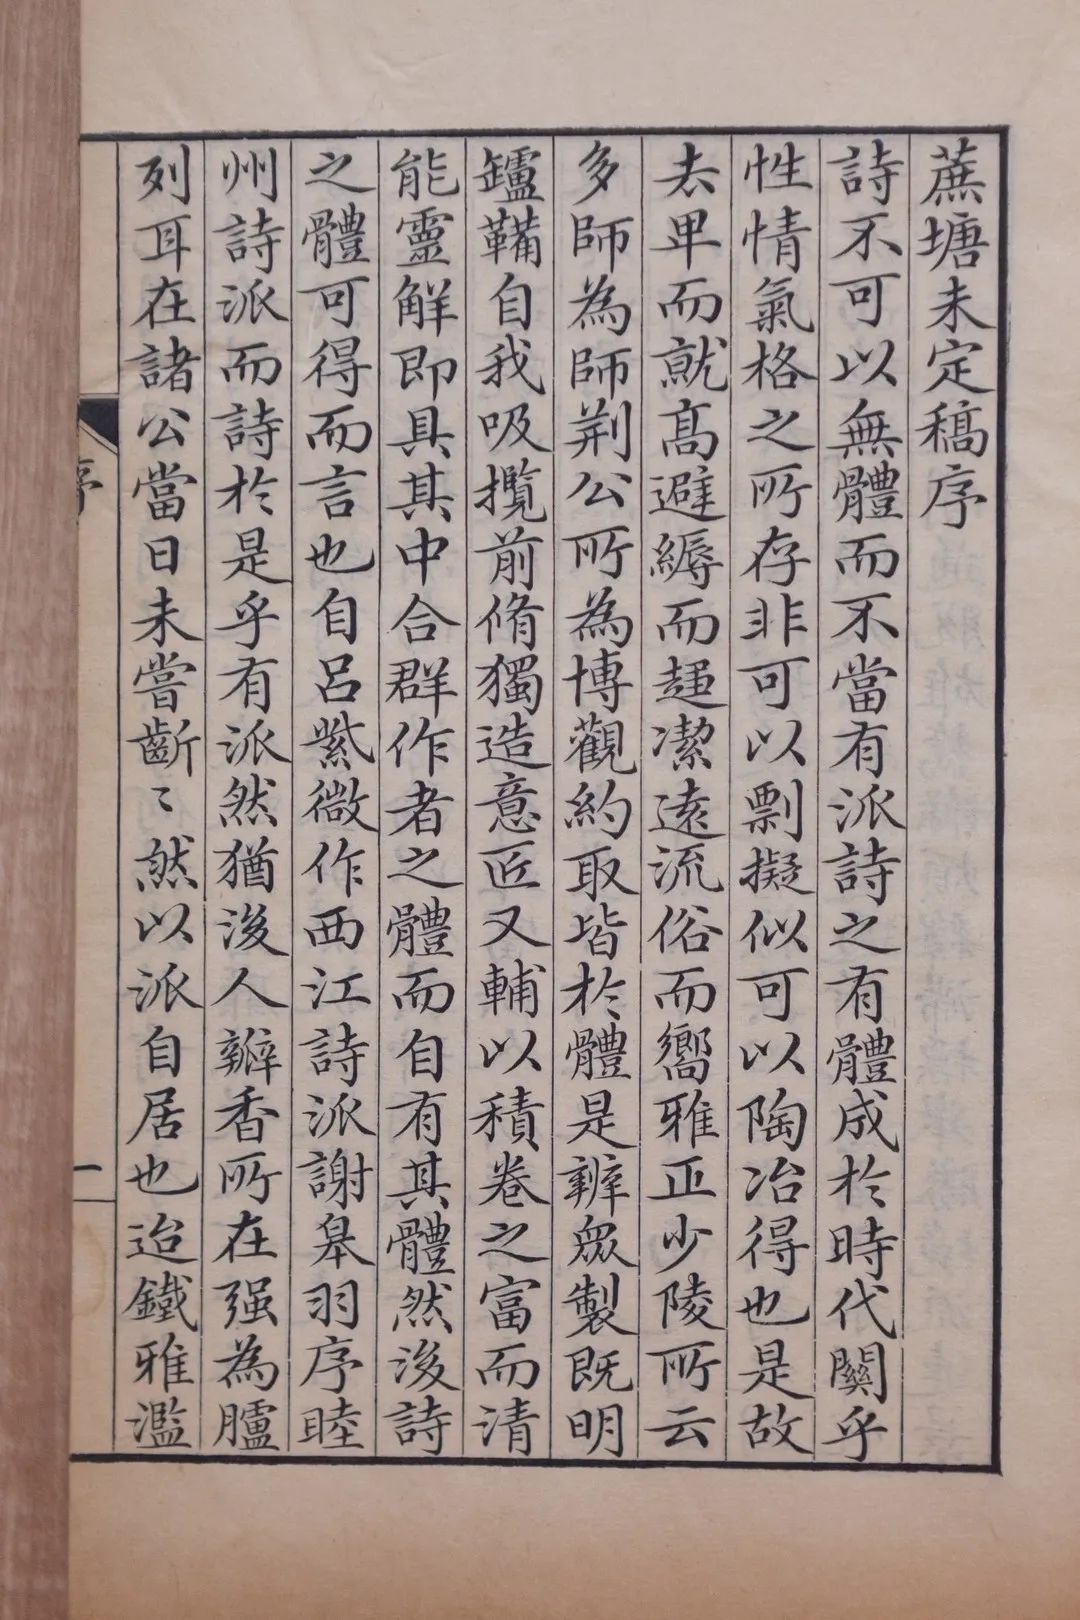 蔗塘未定稿序
詩不可以無體而不當有派詩之有體成於時代關乎
性情氣格之所存非可以剽擬似可以陶冶得也是故
去卑而就高避縟而趨潔遠流俗而嚮雅正少陵所云
多師為師荆公所為博觀約取皆於體是辨衆製既明
鑪鞴自我吸攬前脩獨造意匠又輔以積卷之富而清
能靈解即具其中合群作者之體而自有其體然後詩
之體可得而言也自呂紫微作西江詩派謝皋羽序睦
州詩派而詩於是乎有派然猶後人瓣香所在强為臚
列耳在諸公當日未嘗齗〻然以派自居也迨鐵雅濫
序
一